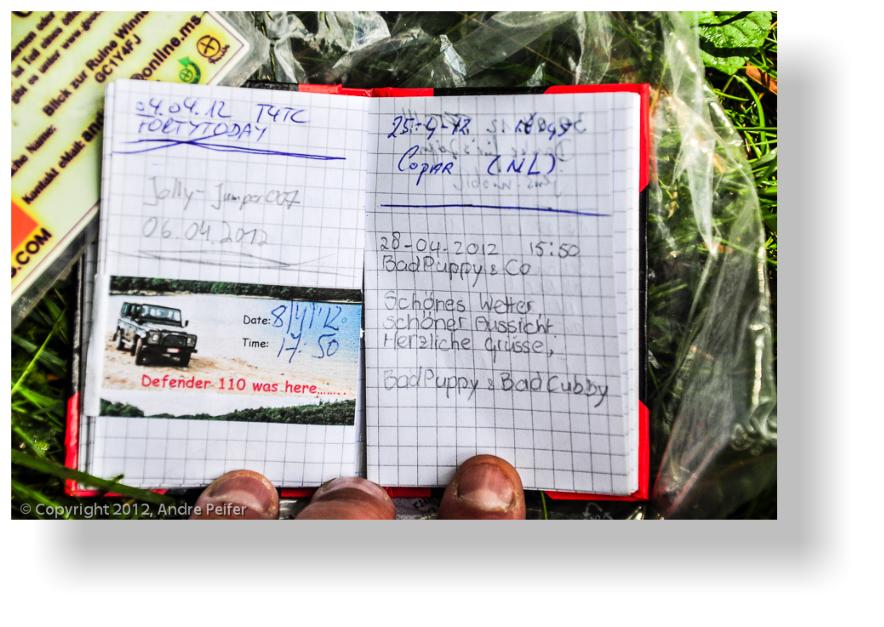 Blick zur Ruine Winne
GC1Y4FJ
online.ms
che Name:
Kontakt eMail: an
S.COM
04.04.12 T4TC
FORTYTODAY
Jolly-Jumper007
06.04.2012
Date: 8/4/'12
Time: 17:50
Defender 110 was here........
25-4-12
CopAR (NL)
28-04-2012 15:50
BadPuppy & Co
Schönes Wetter,
schöner Aussicht
Herzliche Grüsse,
BadPuppy & BadCubby
© Copyright 2012, Andre Peifer